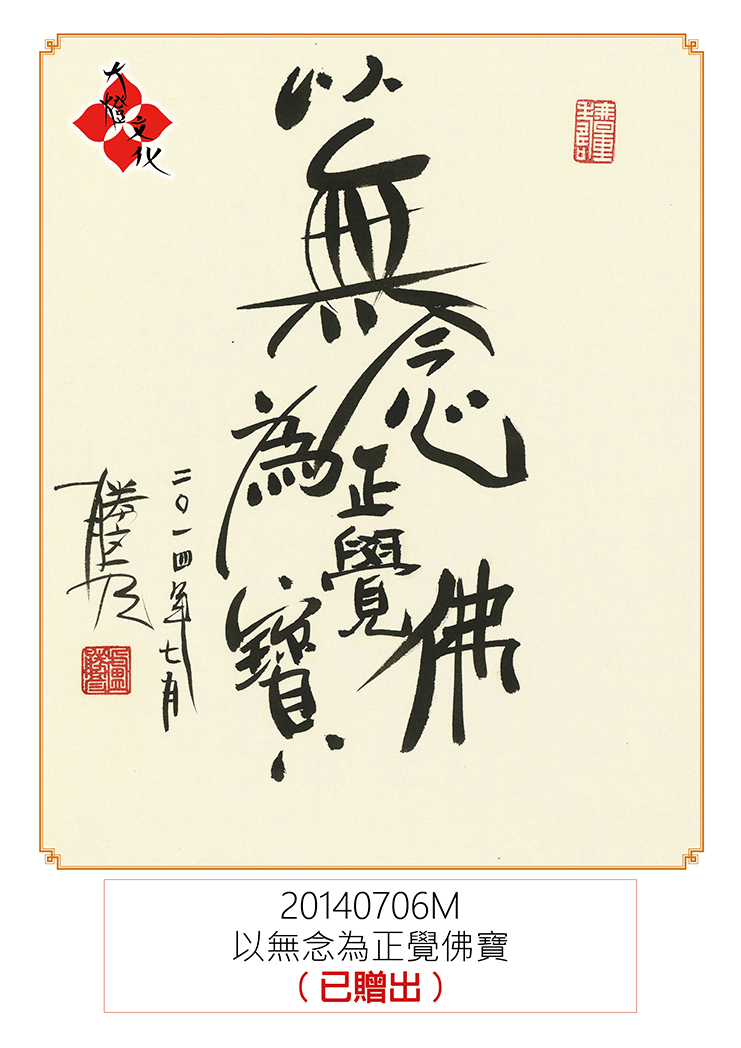 大燈文化
以無念為正覺佛寶
二〇一四年七月
20140706M
以無念為正覺佛寶
（已贈出）